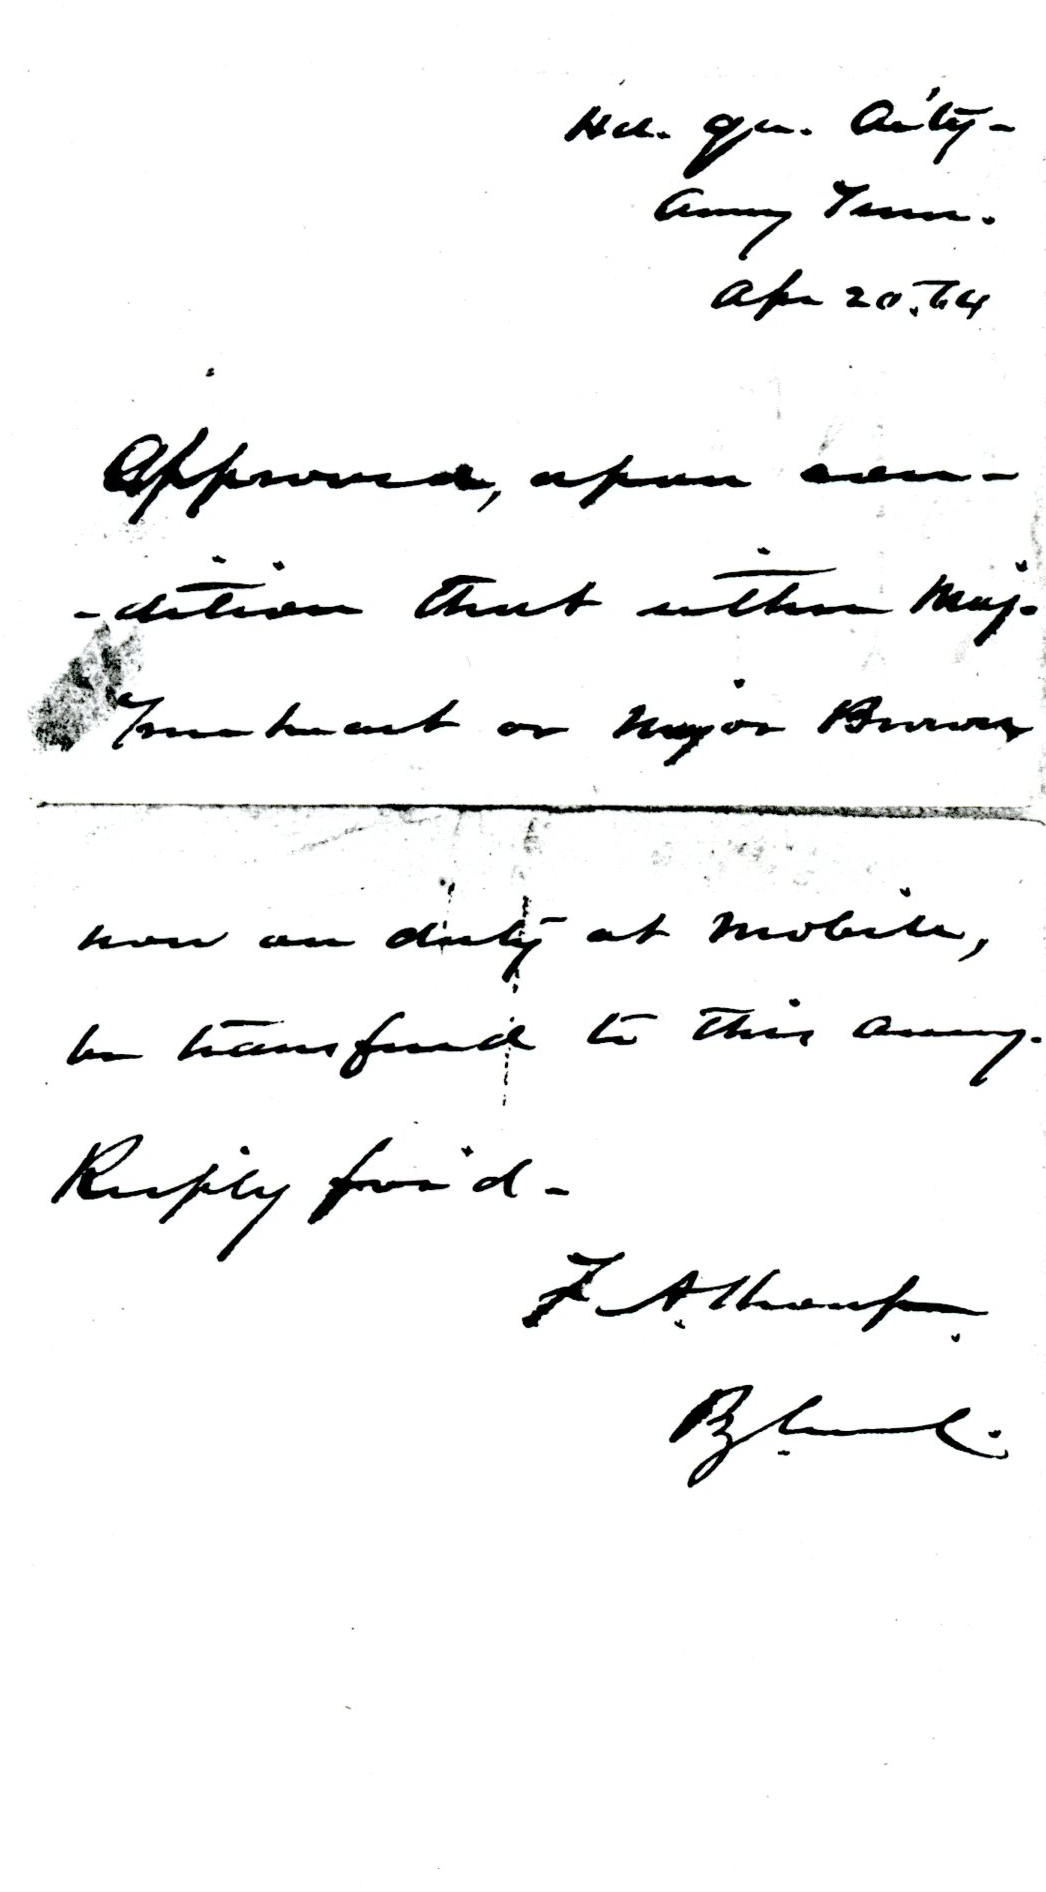 Hd. qrs. Art'y-
Army Tenn.
Apr 20. 64
Approved, upon con-
-dition that either Maj.
Trueheart or Major Brown
now on duty at Mobile,
be transfered to this army.
Resply forw'd -
F. A. Shoup
B. Genl.